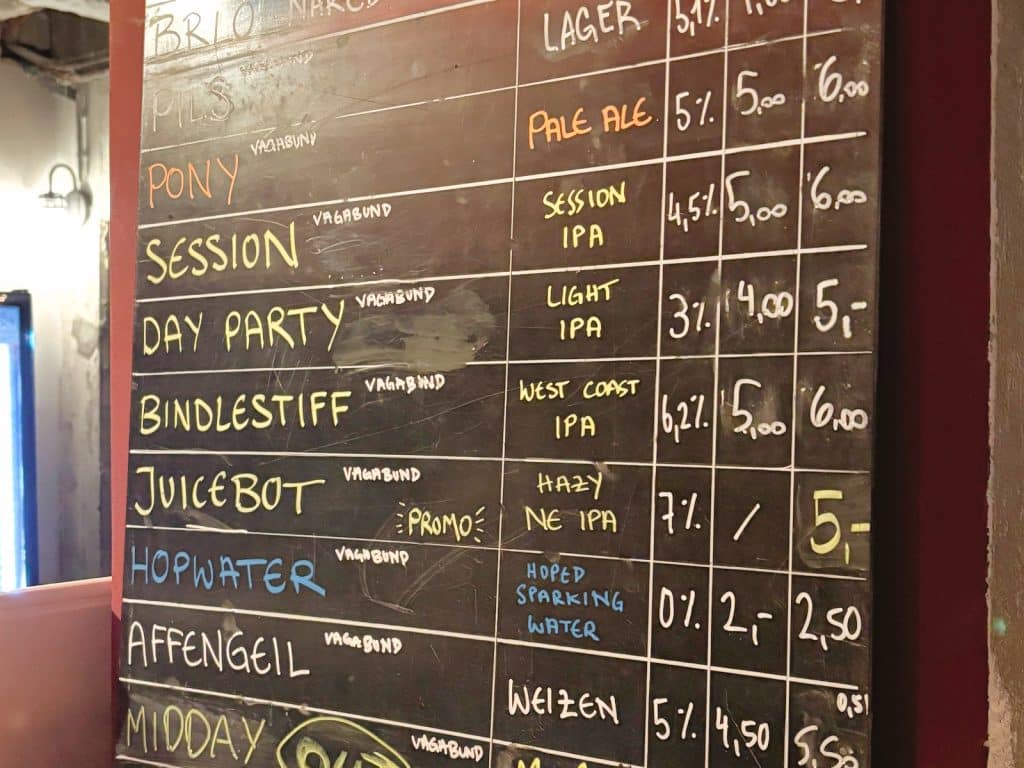 BRLO NAKED LAGER 5,1%
PILS VAGABUND
PALE ALE 5% 5,00 6,00
PONY VAGABUND
SESSION IPA 4,5% 5,00 6,00
SESSION VAGABUND
LIGHT IPA 3% 4,00 5,-
DAY PARTY VAGABUND
WEST COAST IPA 6,2% 5,00 6,00
BINDLESTIFF VAGABUND
HAZY NE IPA 7% / 5,-
JUICEBOT VAGABUND PROMO
HOPED SPARKING WATER 0% 2,- 2,50
HOPWATER VAGABUND
AFFENGEIL VAGABUND
WEIZEN 5% 4,50 0,5l 5,50
MIDDAY OUT VAGABUND